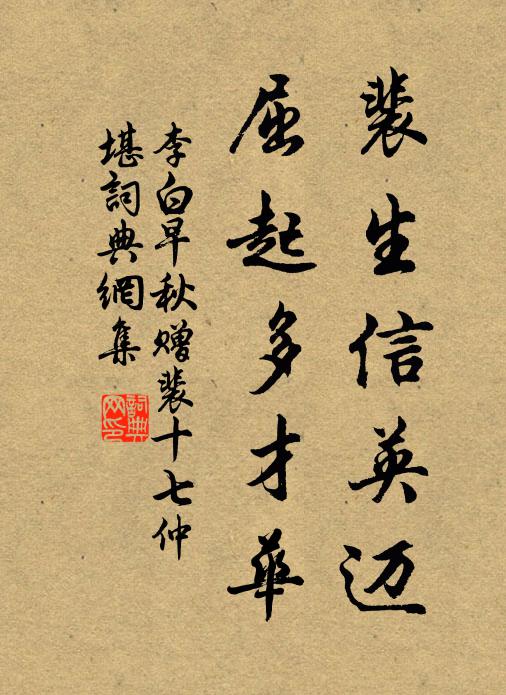 裴生信英迈
屈起多才華
李白早秋赠裴十七仲
堪詞典網集
詞典
网印